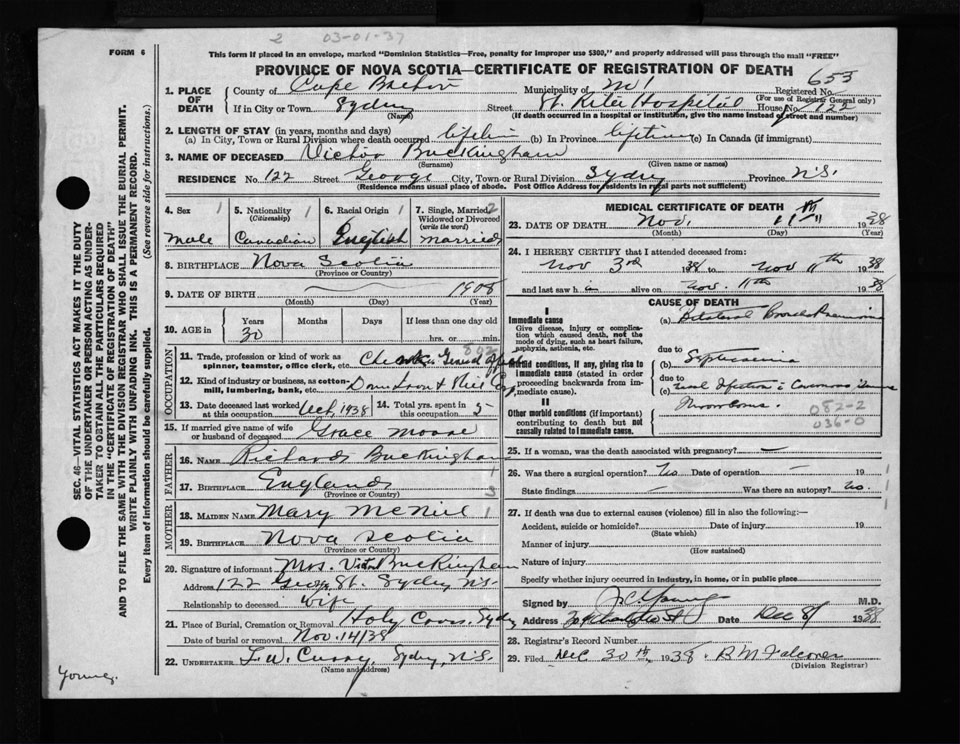 2 03-01-37
FORM 6
This form if placed in an envelope, marked "Dominion Statistics—Free, penalty for improper use $300," and properly addressed will pass through the mail "FREE"
PROVINCE OF NOVA SCOTIA—CERTIFICATE OF REGISTRATION OF DEATH
653
1. PLACE OF DEATH
County of Cape Breton Municipality of Registered No.
(For use of Registrar General only)
If in City or Town Sydney Street St. Rita Hospital House No. 122
(Name) (If death occurred in a hospital or institution, give the name instead of street and number)
2. LENGTH OF STAY (in years, months and days)
(a) In City, Town or Rural Division where death occurred lifetime (b) In Province lifetime (c) In Canada (if immigrant)
3. NAME OF DECEASED Victor Buckingham
(Surname) (Given name or names)
RESIDENCE No. 122 Street George City, Town or Rural Division Sydney Province N.S.
(Residence means usual place of abode. Post Office Address for residents in rural parts not sufficient)
4. Sex 1 Male
5. Nationality 1 (Citizenship) Canadian
6. Racial Origin 1 English
7. Single, Married, 2 Widowed or Divorced (write the word) married
8. BIRTHPLACE Nova Scotia
(Province or Country)
9. DATE OF BIRTH 1908
(Month) (Day) (Year)
10. AGE in Years 30 Months Days If less than one day hrs. or min.
OCCUPATION
11. Trade, profession or kind of work as spinner, teamster, office clerk, etc. Clerk General Office
12. Kind of industry or business, as cotton-mill, lumbering, bank, etc. Dom Iron & Steel Corp
13. Date deceased last worked at this occupation 1938
14. Total yrs. spent in this occupation 5
15. If married give name of wife or husband of deceased Grace Moore
FATHER
16. NAME Richard Buckingham
17. BIRTHPLACE England 3
(Province or Country)
MOTHER
18. MAIDEN NAME Mary McNeil 1
19. BIRTHPLACE Nova Scotia
(Province or Country)
20. Signature of informant Mrs. Victor Buckingham
Address 122 George St. Sydney N.S.
Relationship to deceased wife
21. Place of Burial, Cremation or Removal Holy Cross, Sydney
Date of burial or removal Nov. 14/38
22. UNDERTAKER L.W. Curry, Sydney, N.S.
(Name and address)
MEDICAL CERTIFICATE OF DEATH
23. DATE OF DEATH Nov. 11th 1938
(Month) (Day) (Year)
24. I HEREBY CERTIFY that I attended deceased from:
Nov 3rd 1938 to Nov 11th 1938
and last saw him alive on Nov. 11th 1938
CAUSE OF DEATH
I
Immediate cause
Give disease, injury or complication which caused death, not the mode of dying, such as heart failure, asphyxia, asthenia, etc.
(a) Bilateral Broncho Pneumonia
due to
Morbid conditions, if any, giving rise to immediate cause (stated in order proceeding backwards from immediate cause).
(b) Septicaemia
due to
(c) Infection Cavernous Sinus
Thrombosis.
II
Other morbid conditions (if important) contributing to death but not causally related to immediate cause.
052-2
036-0
25. If a woman, was the death associated with pregnancy? —
26. Was there a surgical operation? No Date of operation — 19
State findings — Was there an autopsy? No.
27. If death was due to external causes (violence) fill in also the following:—
Accident, suicide or homicide? Date of injury 19
(State which)
Manner of injury
(How sustained)
Nature of injury
Specify whether injury occurred in industry, in home, or in public place
Signed by J.C. Young M.D.
Address Charlotte St Date Dec 8/ 1938
28. Registrar's Record Number
29. Filed Dec 30th, 1938 B M Falconer
(Division Registrar)
SEC. 46—VITAL STATISTICS ACT MAKES IT THE DUTY OF THE UNDERTAKER OR PERSON ACTING AS UNDERTAKER TO OBTAIN ALL THE PARTICULARS REQUIRED IN THE "CERTIFICATE OF REGISTRATION OF DEATH" AND TO FILE THE SAME WITH THE DIVISION REGISTRAR WHO SHALL ISSUE THE BURIAL PERMIT.
WRITE PLAINLY WITH UNFADING INK. THIS IS A PERMANENT RECORD.
Every item of information should be carefully supplied. (See reverse side for instructions.)
Young.